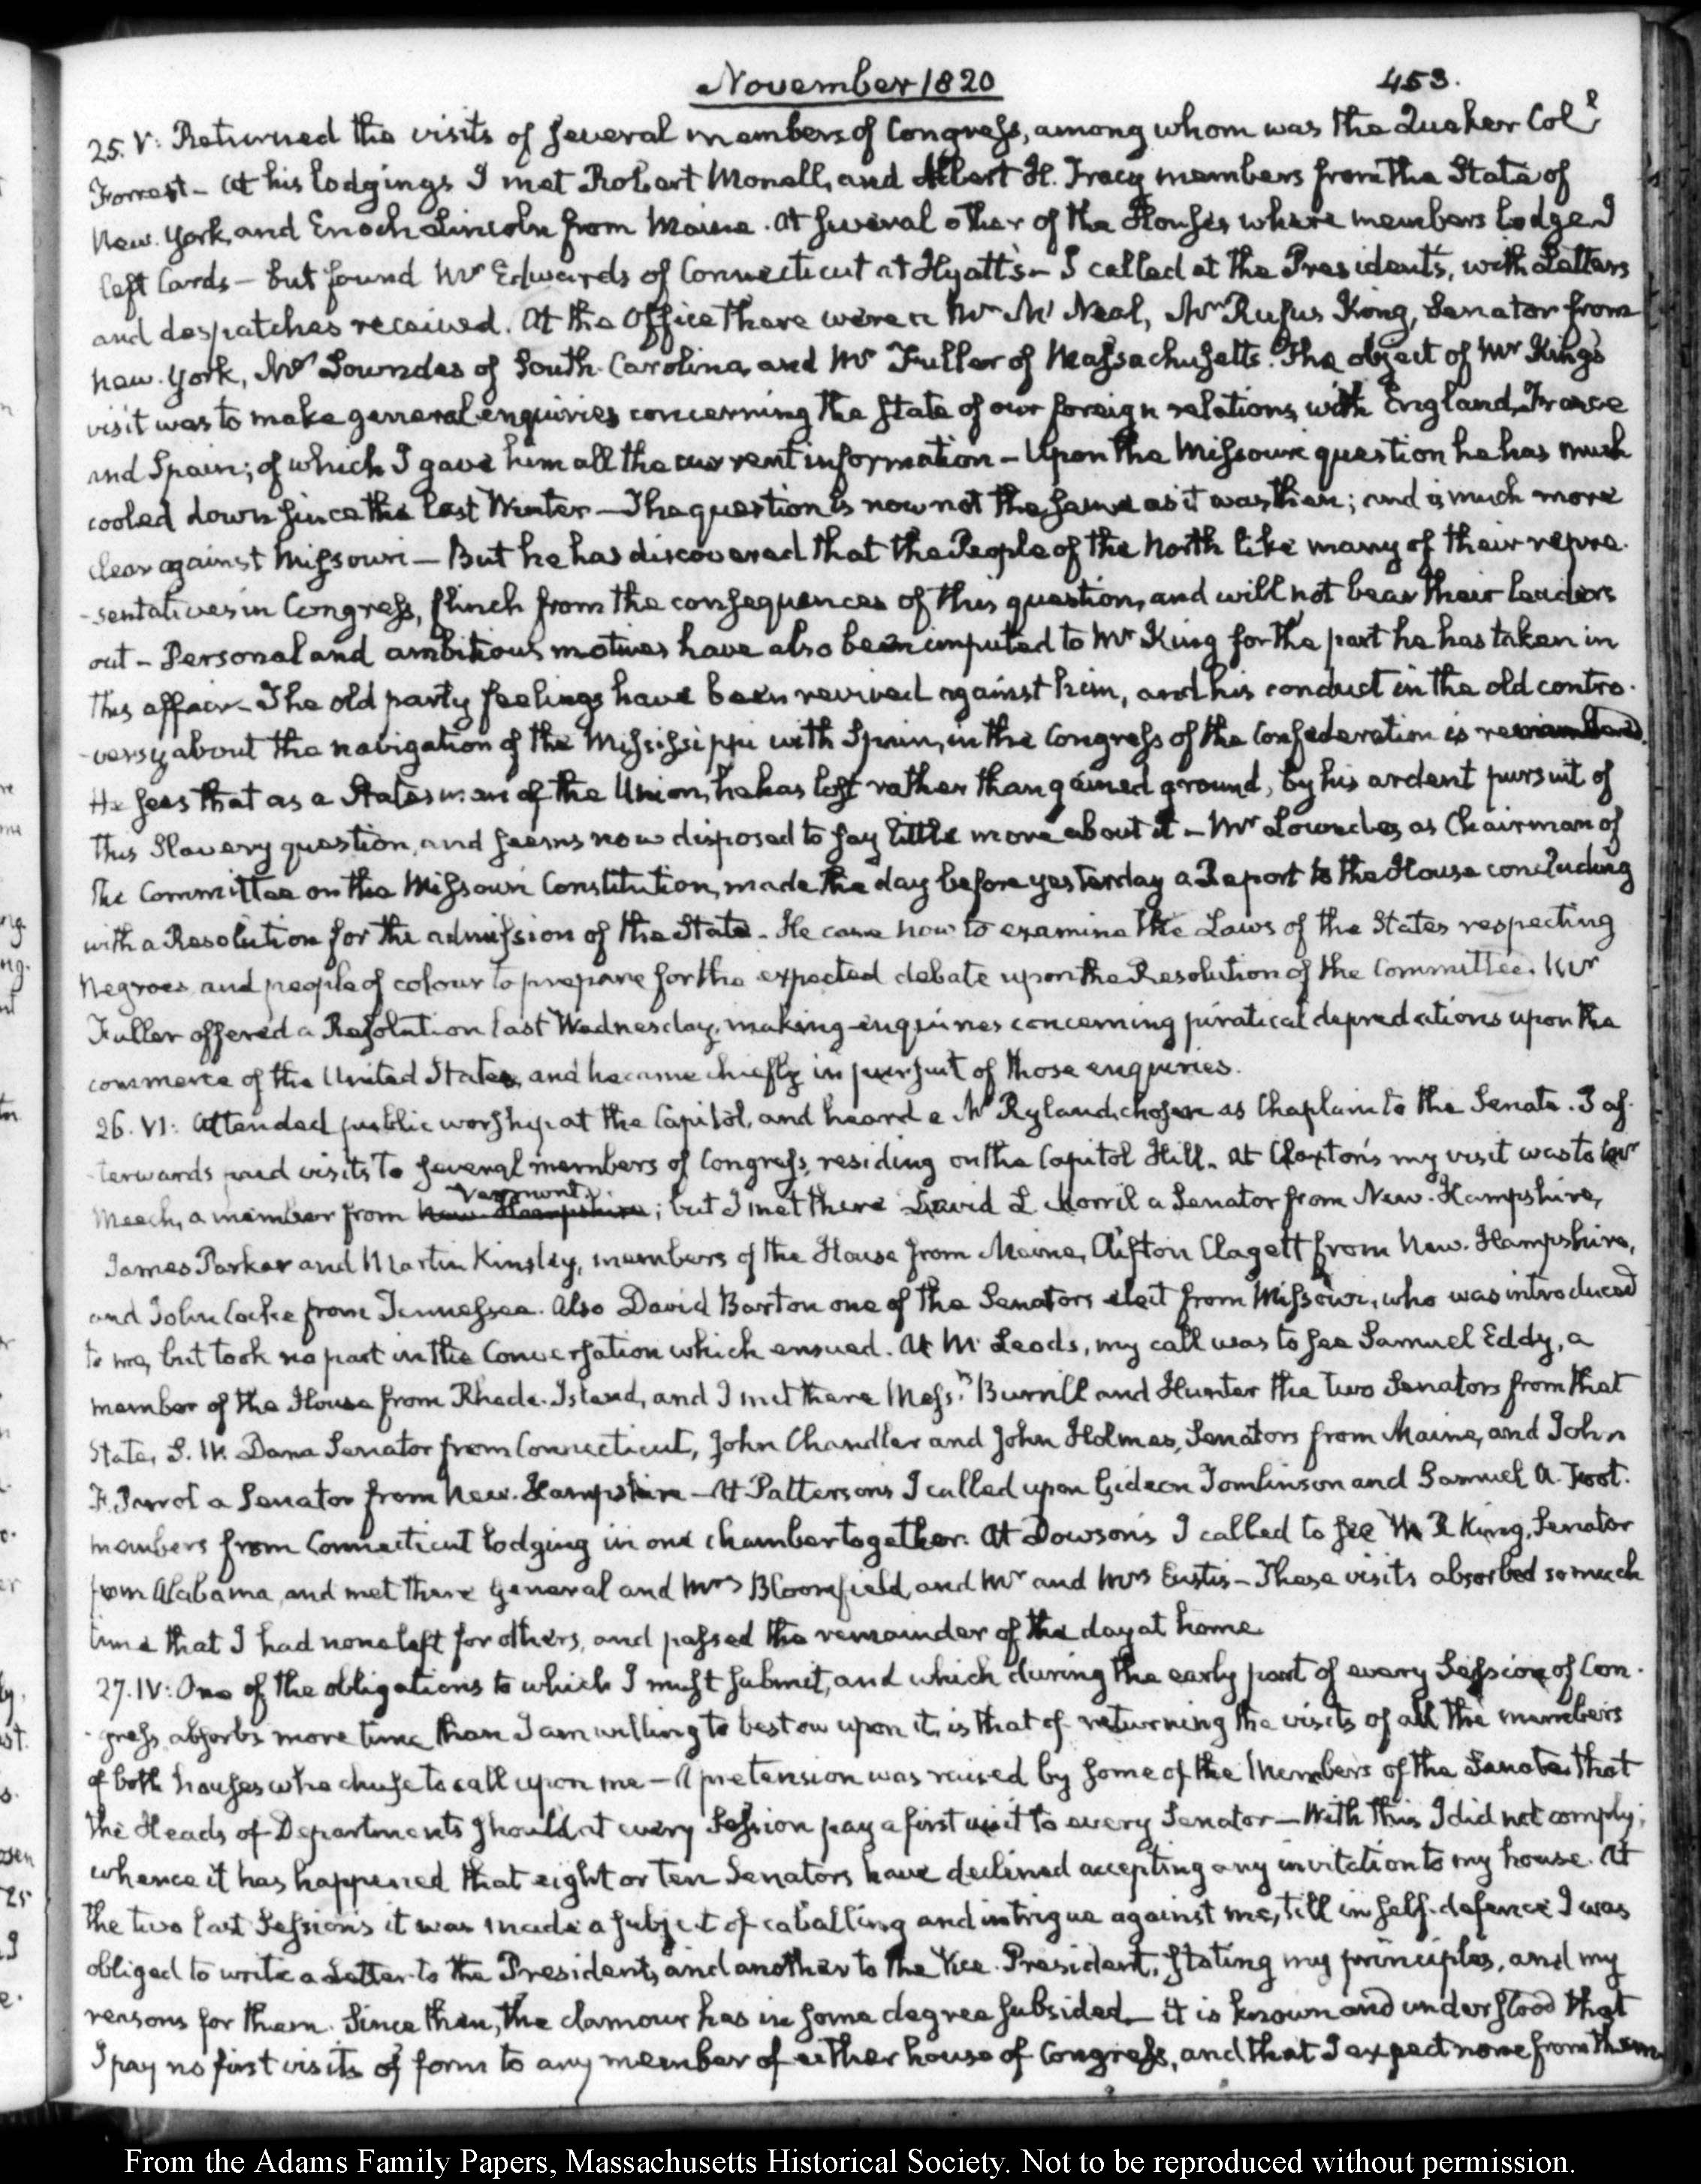 November 1820
453.
25. V: Returned the visits of several members of Congress, among whom was the Quaker Coll
Forrest – At his lodgings I met Robert Monell, and Albert H. Tracy members from the State of
New-York, and Enoch Lincoln from Maine. At several other of the Houses where members lodge I
left Cards – but found Mr Edwards of Connecticut at Hyatt's – I called at the President's, with Letters
and despatches received. At the Office there were a Mr Mc Neal, Mr Rufus King, Senator from
New-York, Mr Lowndes of South-Carolina, and Mr Fuller of Massachusetts. The object of Mr King's
visit was to make general enquiries concerning the state of our foreign relations, with England, France
and Spain; of which I gave him all the current information – Upon the Missouri question he has much
cooled down since the last Winter – The question is now not the same as it was then; and is much more
clear against Missouri – But he has discovered that the People of the North like many of their repre-
-sentatives in Congress, flinch from the consequences of this question, and will not bear their leaders
out – Personal and ambitious motives have also been imputed to Mr King for the part he has taken in
this affair – The old party feelings have been revived against him, and his conduct in the old contro-
-versy about the navigation of the Mississippi with Spain, in the Congress of the Confederation is remembered.
He sees that as a Statesman of the Union, he has lost rather than gained ground, by his ardent pursuit of
this Slavery question, and seems now disposed to say little more about it – Mr Lowndes, as Chairman of
the Committee on the Missouri Constitution, made the day before yesterday a Report to the House concluding
with a Resolution for the admission of the State – He came now to examine the Laws of the States respecting
Negroes and people of colour to prepare for the expected debate upon the Resolution of the Committee. Mr
Fuller offered a Resolution last Wednesday, making enquiries concerning piratical depredations upon the
commerce of the United States, and he came chiefly in pursuit of those enquiries.
26. VI: Attended public worship at the Capitol, and heard a Mr Ryland, chosen as Chaplain to the Senate. I af-
-terwards paid visits to several members of Congress, residing on the Capitol Hill. At Claxton's my visit was to Mr
Meech, a member from New-Hampshire Vermont; but I met there David L Morril a Senator from New-Hampshire,
James Parker and Martin Kinsley, members of the House from Maine, Clifton Clagett from New-Hampshire,
and John Cocke from Tennessee. Also David Barton one of the Senators elect from Missouri, who was introduced
to me, but took no part in the Conversation which ensued. At Mc Leods, my call was to see Samuel Eddy, a
member of the House from Rhode-Island, and I met there Messrs Burrill and Hunter the two Senators from that
State, S. W. Dana Senator from Connecticut, John Chandler and John Holmes, Senators from Maine, and John
F. Parrot a Senator from New-Hampshire – At Patterson's I called upon Gideon Tomlinson and Samuel A. Foot.
members from Connecticut lodging in one chamber together. At Dowson's I called to see W R King, Senator
from Alabama, and met there General and Mrs Bloomfield, and Mr and Mrs Eustis – These visits absorbed so much
time that I had none left for others, and passed the remainder of the day at home
27. IV: One of the obligations to which I must submit, and which during the early part of every Session of Con-
-gress absorbs more time than I am willing to bestow upon it, is that of returning the visits of all the members
of both houses who chuse to call upon me – A pretension was raised by some of the Members of the Senate, that
the Heads of Departments should at every Session pay a first visit to every Senator – With this I did not comply;
whence it has happened that eight or ten Senators have declined accepting any invitation to my house. At
the two last Sessions it was made a subject of caballing and intrigue against me, till in self-defence I was
obliged to write a Letter to the President, and another to the Vice-President, stating my principles, and my
reasons for them. Since then, the clamour has in some degree subsided – it is known and understood that
I pay no first visits of form to any member of either house of Congress, and that I expect none from them
From the Adams Family Papers, Massachusetts Historical Society. Not to be reproduced without permission.